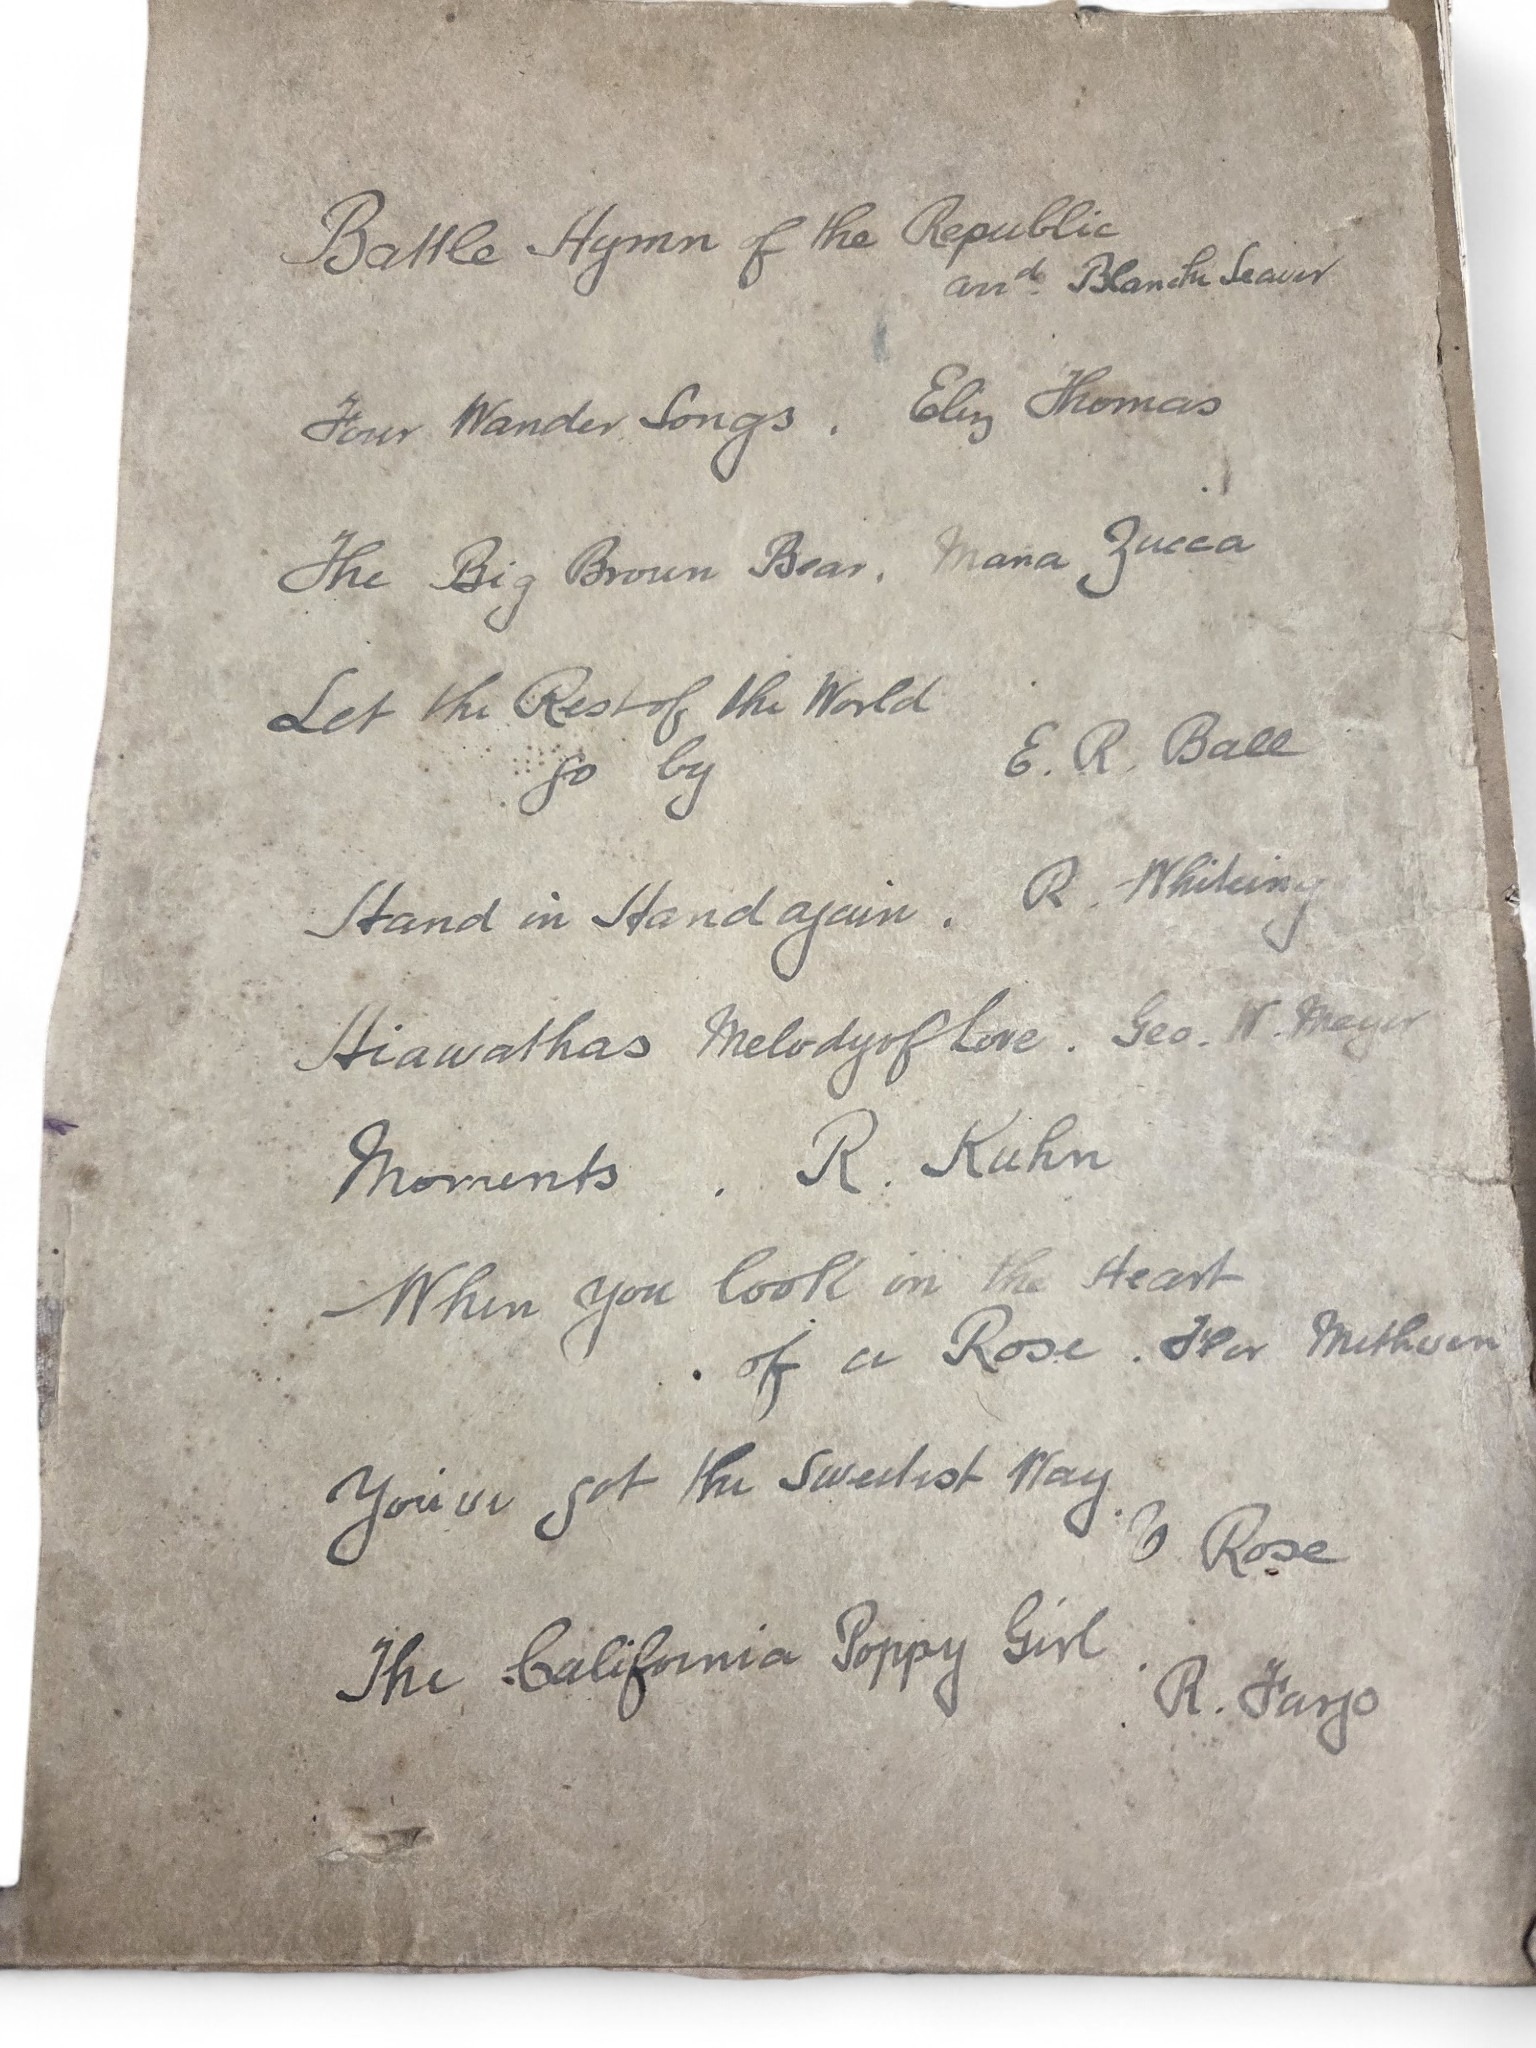 Battle Hymn of the Republic
arrd. Blanche Seaver
Four Wander Songs. Eliz Thomas
The Big Brown Bear. Mana Zucca
Let the Rest of the World
go by E. R. Ball
Hand in Hand again. R. Whiting
Hiawathas Melody of Love. Geo. W. Meyer
Moments. R. Kuhn
When you look in the Heart
of a Rose. Methven
You've got the Sweetest Way.
Rose
The California Poppy Girl.
R. Fargo